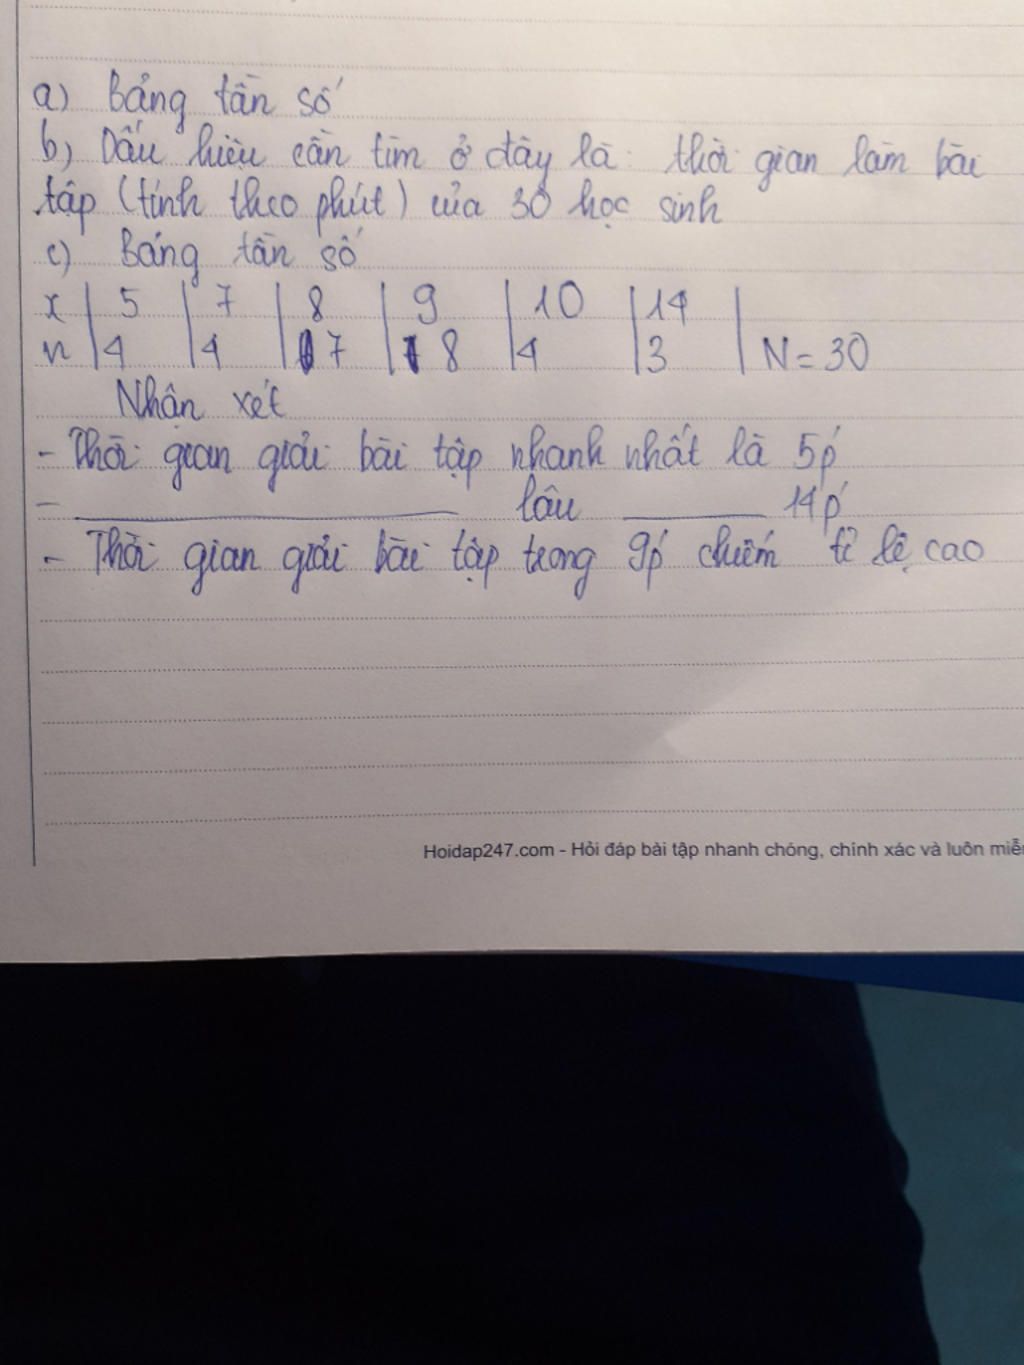 a) Bảng tần số
b) Dấu hiệu cần tìm ở đây là: thời gian làm bài
tập (tính theo phút) của 30 học sinh
c) Bảng tần số
x | 5 | 7 | 8 | 9 | 10 | 14 |
n | 4 | 4 | 7 | 8 | 4 | 3 | N = 30
Nhận xét
- Thời gian giải bài tập nhanh nhất là 5p
- ____________ lâu ______ 14p
- Thời gian giải bài tập trong 9p chiếm tỉ lệ cao
Hoidap247.com - Hỏi đáp bài tập nhanh chóng, chính xác và luôn miễn